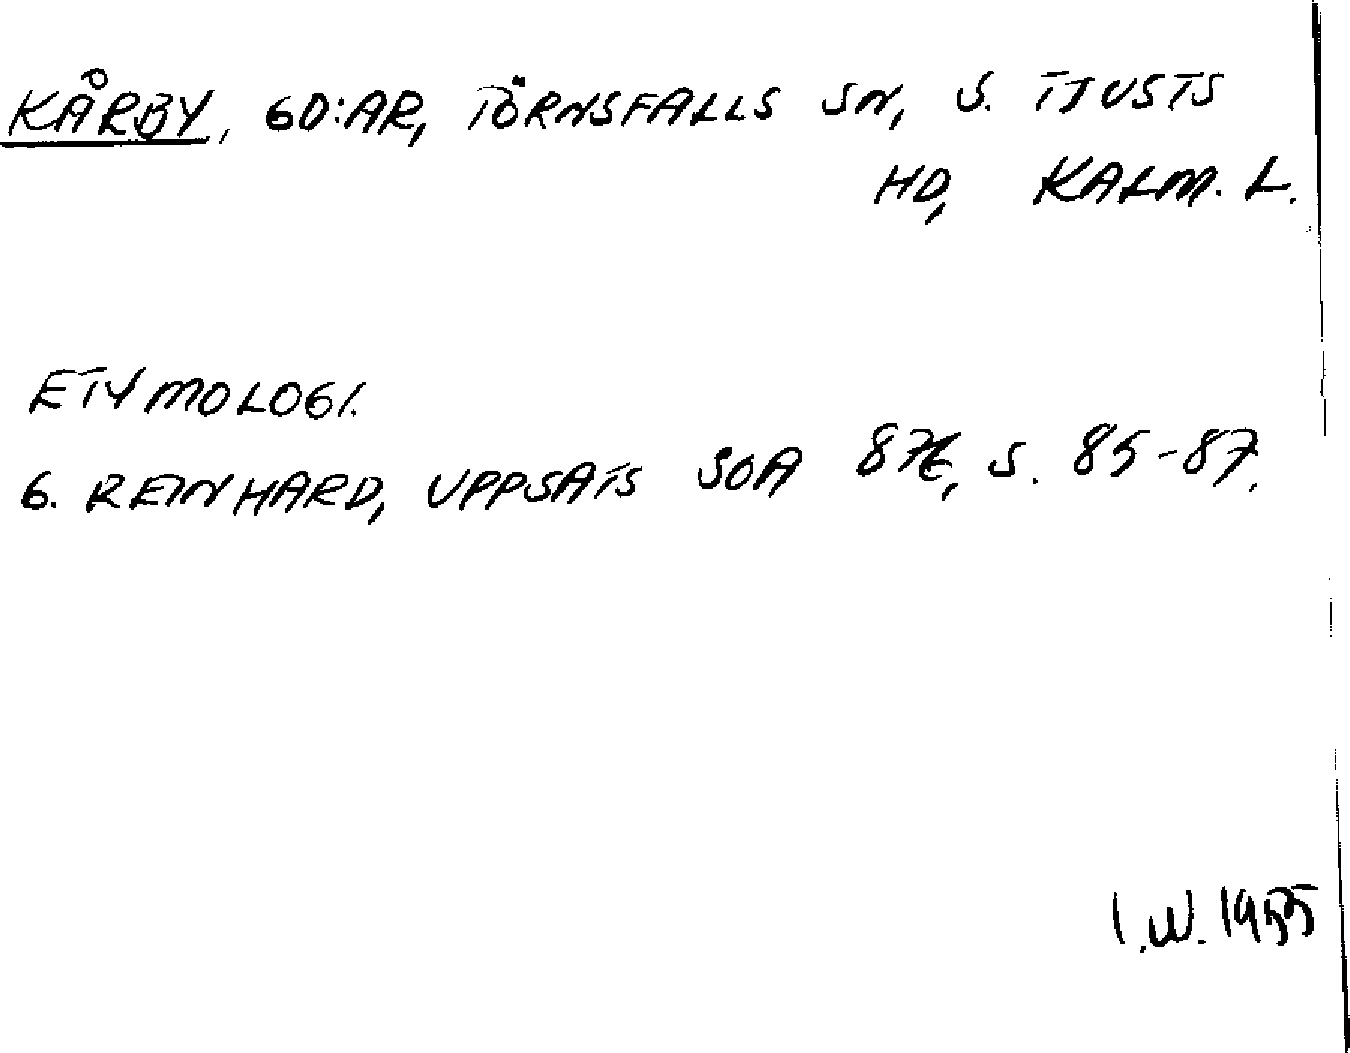 KÅRBY, GD:AR, TÖRNSFALLS SN, S. TJUSTS
HD, KALM. L.
ETYMOLOGI.
G. REINHARD, UPPSATS SOA 876, S. 85-87.
I.W. 1955